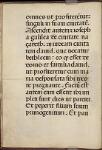 omnes ut profiterentur
singuli in suam civitatē.
Ascendit autem ioseph
a galilea de civitate na
zareth. in iudeam civita
tem david. que vocatur
bethleem: eo q esset de
domo et familia david.
ut profiteretur cum ma
ria desponsata sibi uxo
re pregnante. Factū est
autem cum essent ibi im
pleti sunt dies ut pareret.
Et peperit filium suum
primogenitum. Et pan